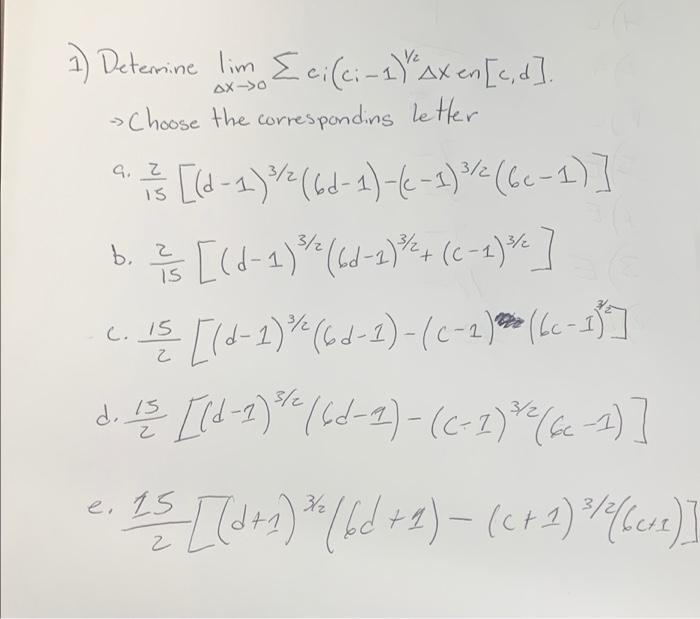 1) Detemine lim Δx→0 Σ ci(ci-1)^1/2 Δx en [c,d].
→ Choose the correspondins letter
a. 2/15 [(d-1)^3/2 (6d-1)-(c-1)^3/2 (6c-1)]
b. 2/15 [(d-1)^3/2 (6d-1)^3/2 + (c-1)^3/2]
c. 15/2 [(d-1)^3/2 (6d-1)-(c-1) (6c-1)^3/2]
d. 15/2 [(d-1)^3/2 (6d-1)-(c-1)^3/2 (6c-1)]
e. 15/2 [(d+1)^3/2 (6d+1)-(c+1)^3/2 (6c+1)]